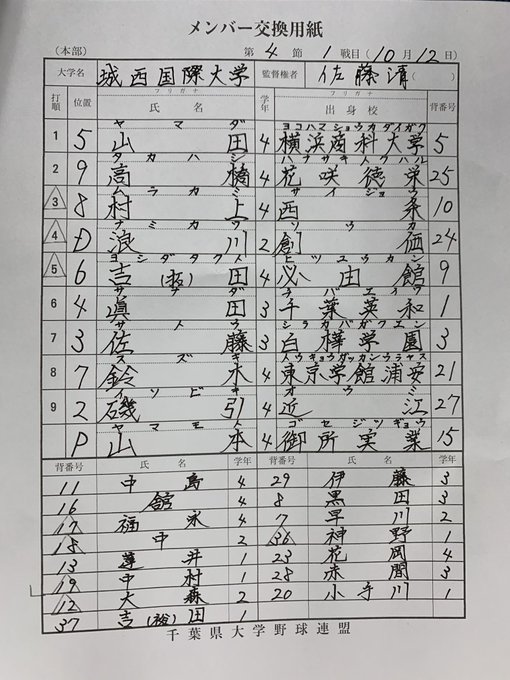 メンバー交換用紙
（本部） 第 4 節 1 戦目（10月12日）
大学名 城西国際大学 監督権者 佐藤清（ ）
打順 位置 フリガナ 氏名 学年 フリガナ 出身校 背番号
ヤマダ ヨコハマショウカダイガク
1 5 山田 4 横浜商科大学 5
タカハシ ハナサキトクハル
2 9 高橋 4 花咲徳栄 25
ムラカミ サイジョウ
3 8 村上 4 西条 10
ナミカワ ソウカ
4 D 浪川 2 創価 24
ヨシダタクト ヒツユウカン
5 6 吉(拓)田 4 必由館 9
サナダ チバエイワ
6 4 眞田 3 千葉英和 1
サトウ シラカバガクエン
7 3 佐藤 3 白樺学園 3
スズキ トウキョウガッカンウラヤス
8 7 鈴木 4 東京学館浦安 21
イソビキ オウミ
9 2 磯引 4 近江 27
ヤマモト ゴセジツギョウ
P 山本 4 御所実業 15
背番号 氏名 学年 背番号 氏名 学年
11 中島 4 29 伊藤 3
16 舘 4 8 黒田 3
17 福永 4 7 早川 2
18 中 2 36 神野 1
13 蓮井 1 23 花岡 4
19 中村 1 28 赤間 3
12 大森 2 20 小手川 1
37 吉(裕)田 1
千葉県大学野球連盟